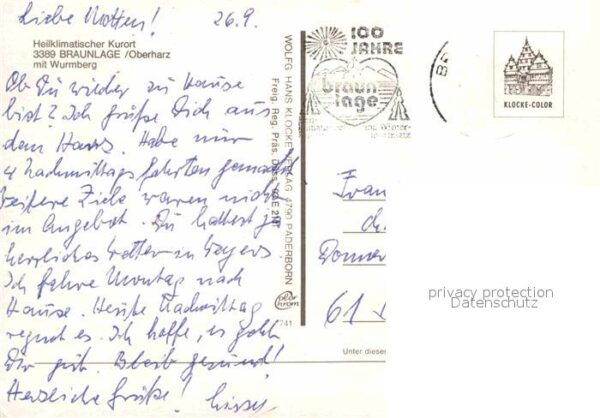 Liebe 26.9.
Heilklimatischer Kurort
3389 BRAUNLAGE /Oberharz
mit Wurmberg
Ob Du wieder zu Hause
bist? Ich grüße Dich aus
dem Harz. Habe nur
4 Nachmittagsfahrten gemacht
weitere Ziele waren nicht
im Angebot. Du hattest ja
herrliches Wetter in
Ich fahre Montag nach
Hause. Heute Nachmittag
regnet es. Ich hoffe, es geht
Dir gut. Bleib gesund!
Herzliche Grüße!
WOLFG. HANS KLOCKE VERLAG 4790 PADERBORN
Freig. Reg. Präs.
color
chrom
741
Unter diesen
100
JAHRE
braun
lage
KLOCKE-COLOR
Frau
Donner
61
privacy protection
Datenschutz